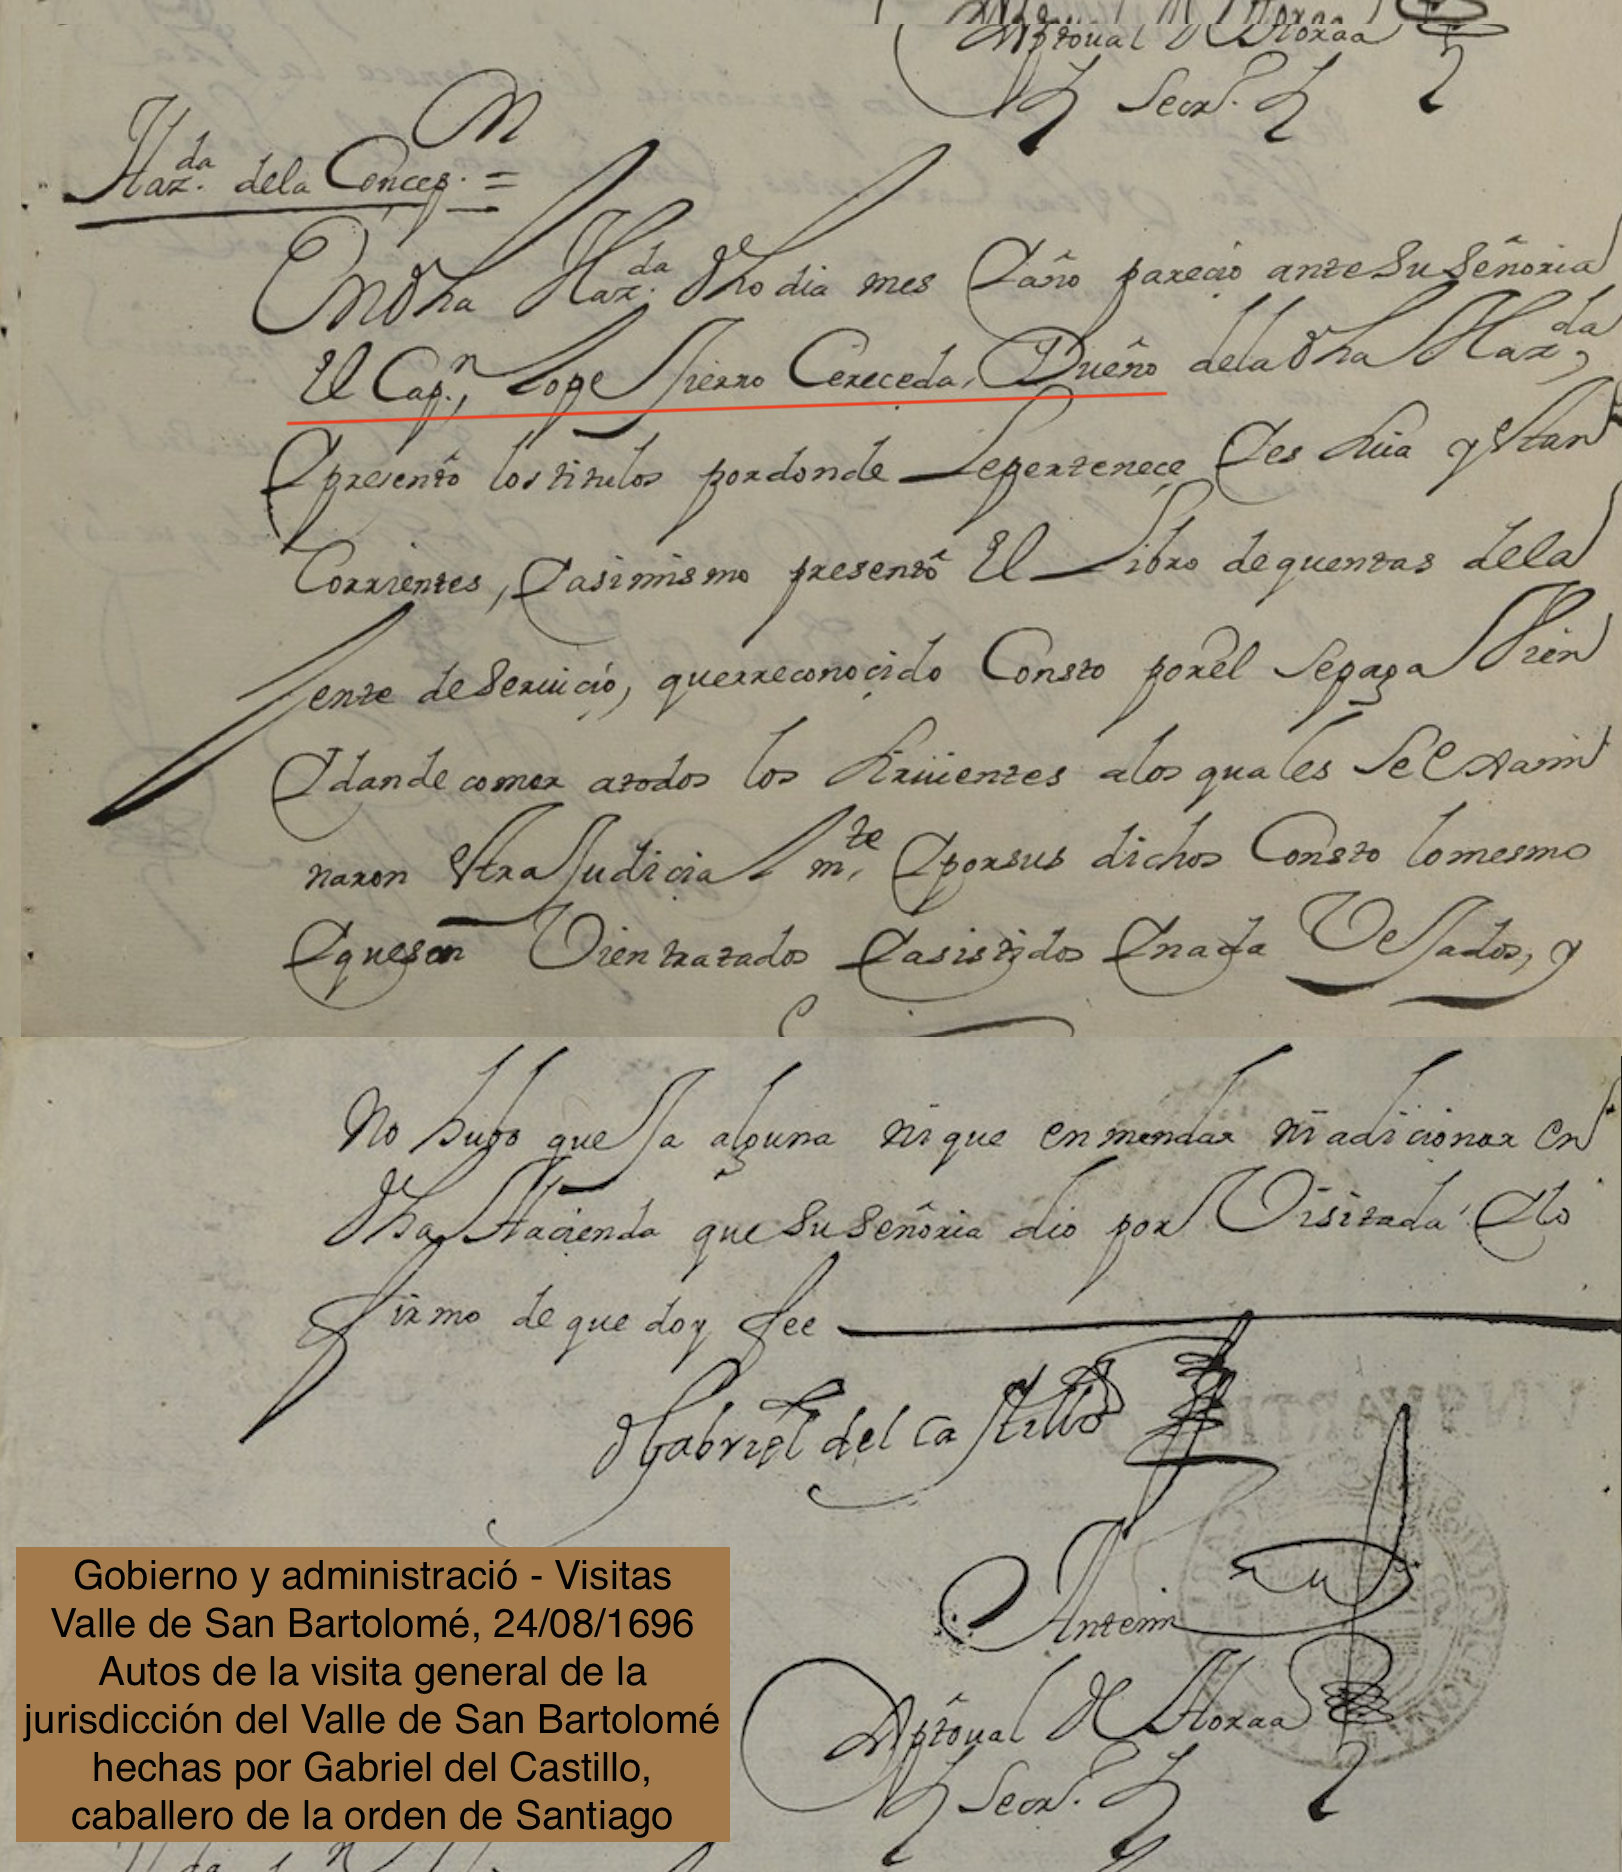 Xptoual de Horaa
Secr.º
Hazda. dela Concep. =
En dha Hazda. dho dia mes Y año parecio ante Su Señoria
El Capn., Lope Sierro Cereceda, Dueño dela dha Hazda,
Y presentô los titulos por donde Le pertenece Y es Suia y Stan
Corrientes, Y asimismo presentô El Libro de quentas dela
Jente de Seruicio, que rreconocido Consto por el Se paga Vien
Y dan de comer a todos los Siruientes a los quales Se Exami
naron Stra Judicial mte, Y por sus dichos Consto lo mesmo
Y que son Vien tratados Y asistidos Y nada Vejados, y
No hubo queJa alguna ni que enmendar ni adicionar en
dha Hacienda que Su Señoria dio por Visitada Y lo
firmo de que doy fee
D Gabriel del Castillo
Ante mi
Xptoual de Horaa
Secr.º
Gobierno y administració - Visitas
Valle de San Bartolomé, 24/08/1696
Autos de la visita general de la
jurisdicción del Valle de San Bartolomé
hechas por Gabriel del Castillo,
caballero de la orden de Santiago